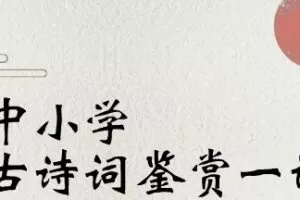 中小学
古诗词鉴赏一